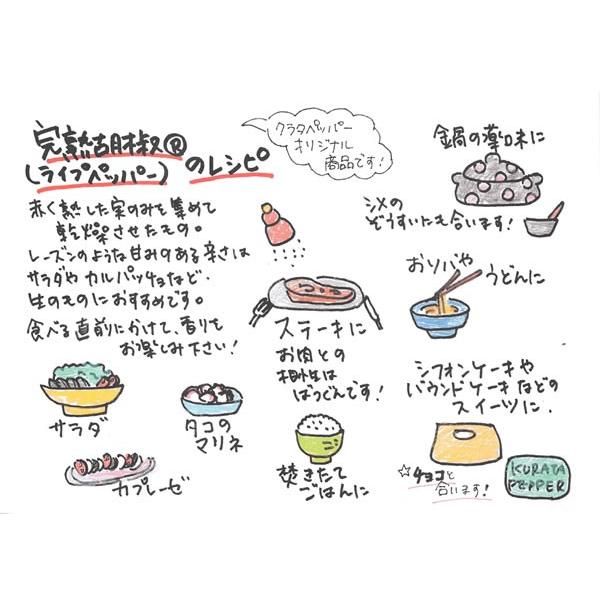 完熟胡椒®
(ライプペッパー)
のレシピ
クラタペッパー
オリジナル
商品です!
赤く熟した実のみを集めて
乾燥させたもの。
レーズンのような甘みのある辛さは
サラダやカルパッチョなど、
生のものにおすすめです。
食べる直前にかけて、香りも
お楽しみ下さい!
サラダ
タコの
マリネ
カプレーゼ
ステーキに
お肉との
相性は
ばつぐんです!
焚きたて
ごはんに
金鍋の薬味に
シメの
ぞうすいにも合います!
おソバや
うどんに
シフォンケーキや
パウンドケーキなどの
スイーツに.
☆チョコと
合います!
KURATA
PEPPER